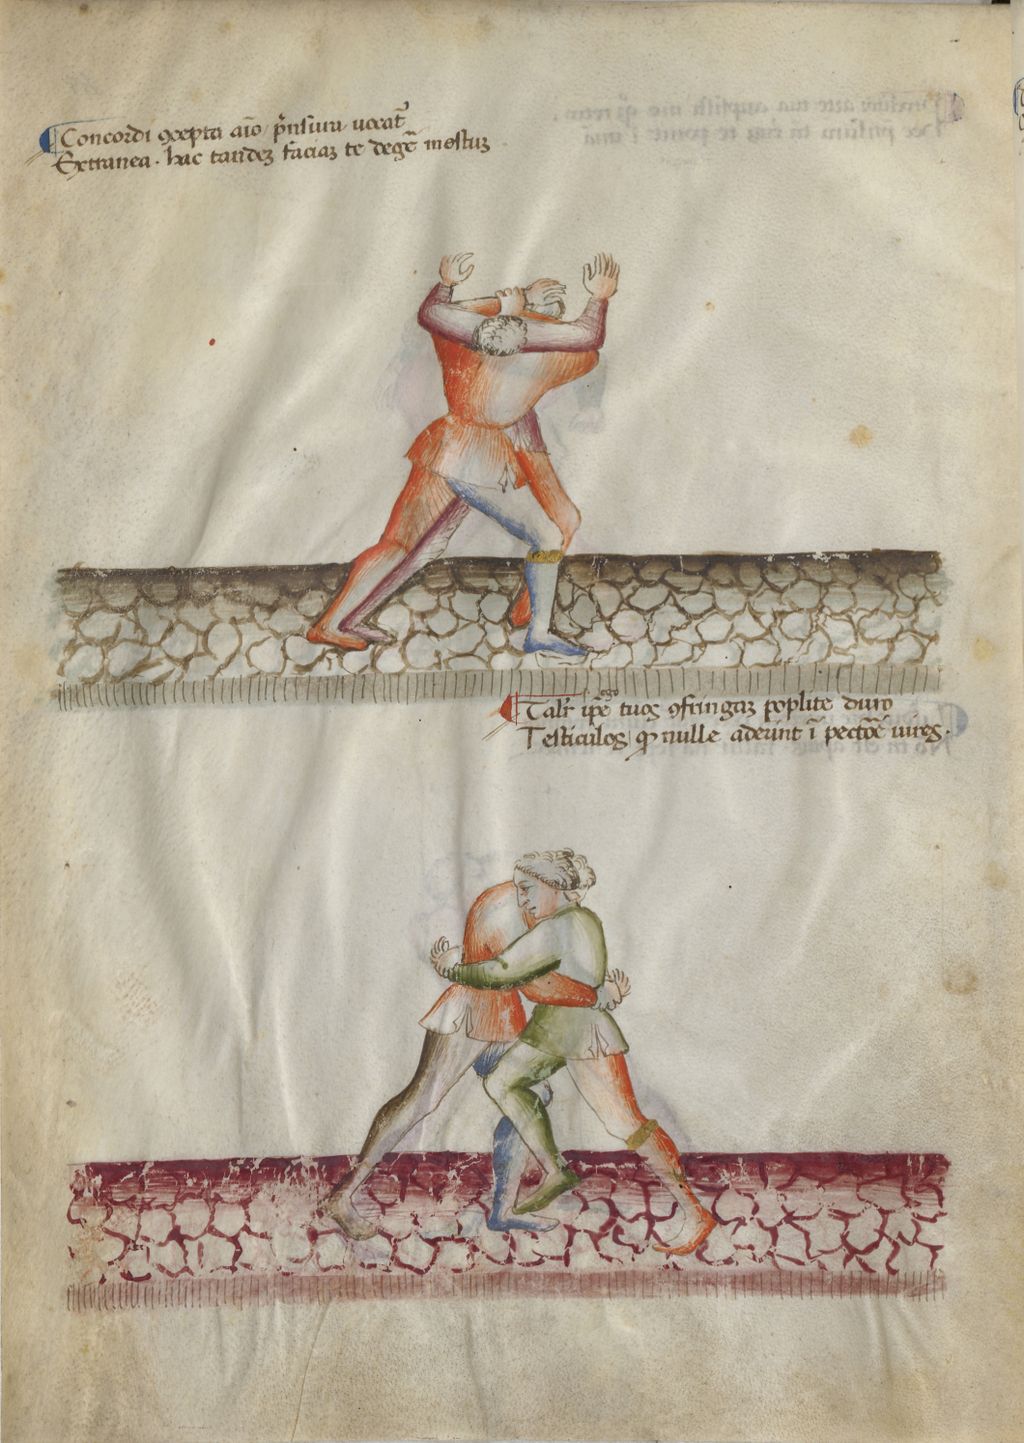 Concordi ꝯcepta aīo p̄nsura uocat᷑
Extranea . hac tandeꝫ faciaꝫ te degē̄ mestuꝫ
ego
Talr̄ ip̄e tuos ꝯfringaꝫ poplite duro
Testiculos / ꝙ nulle aderunt ī pectoē uires .